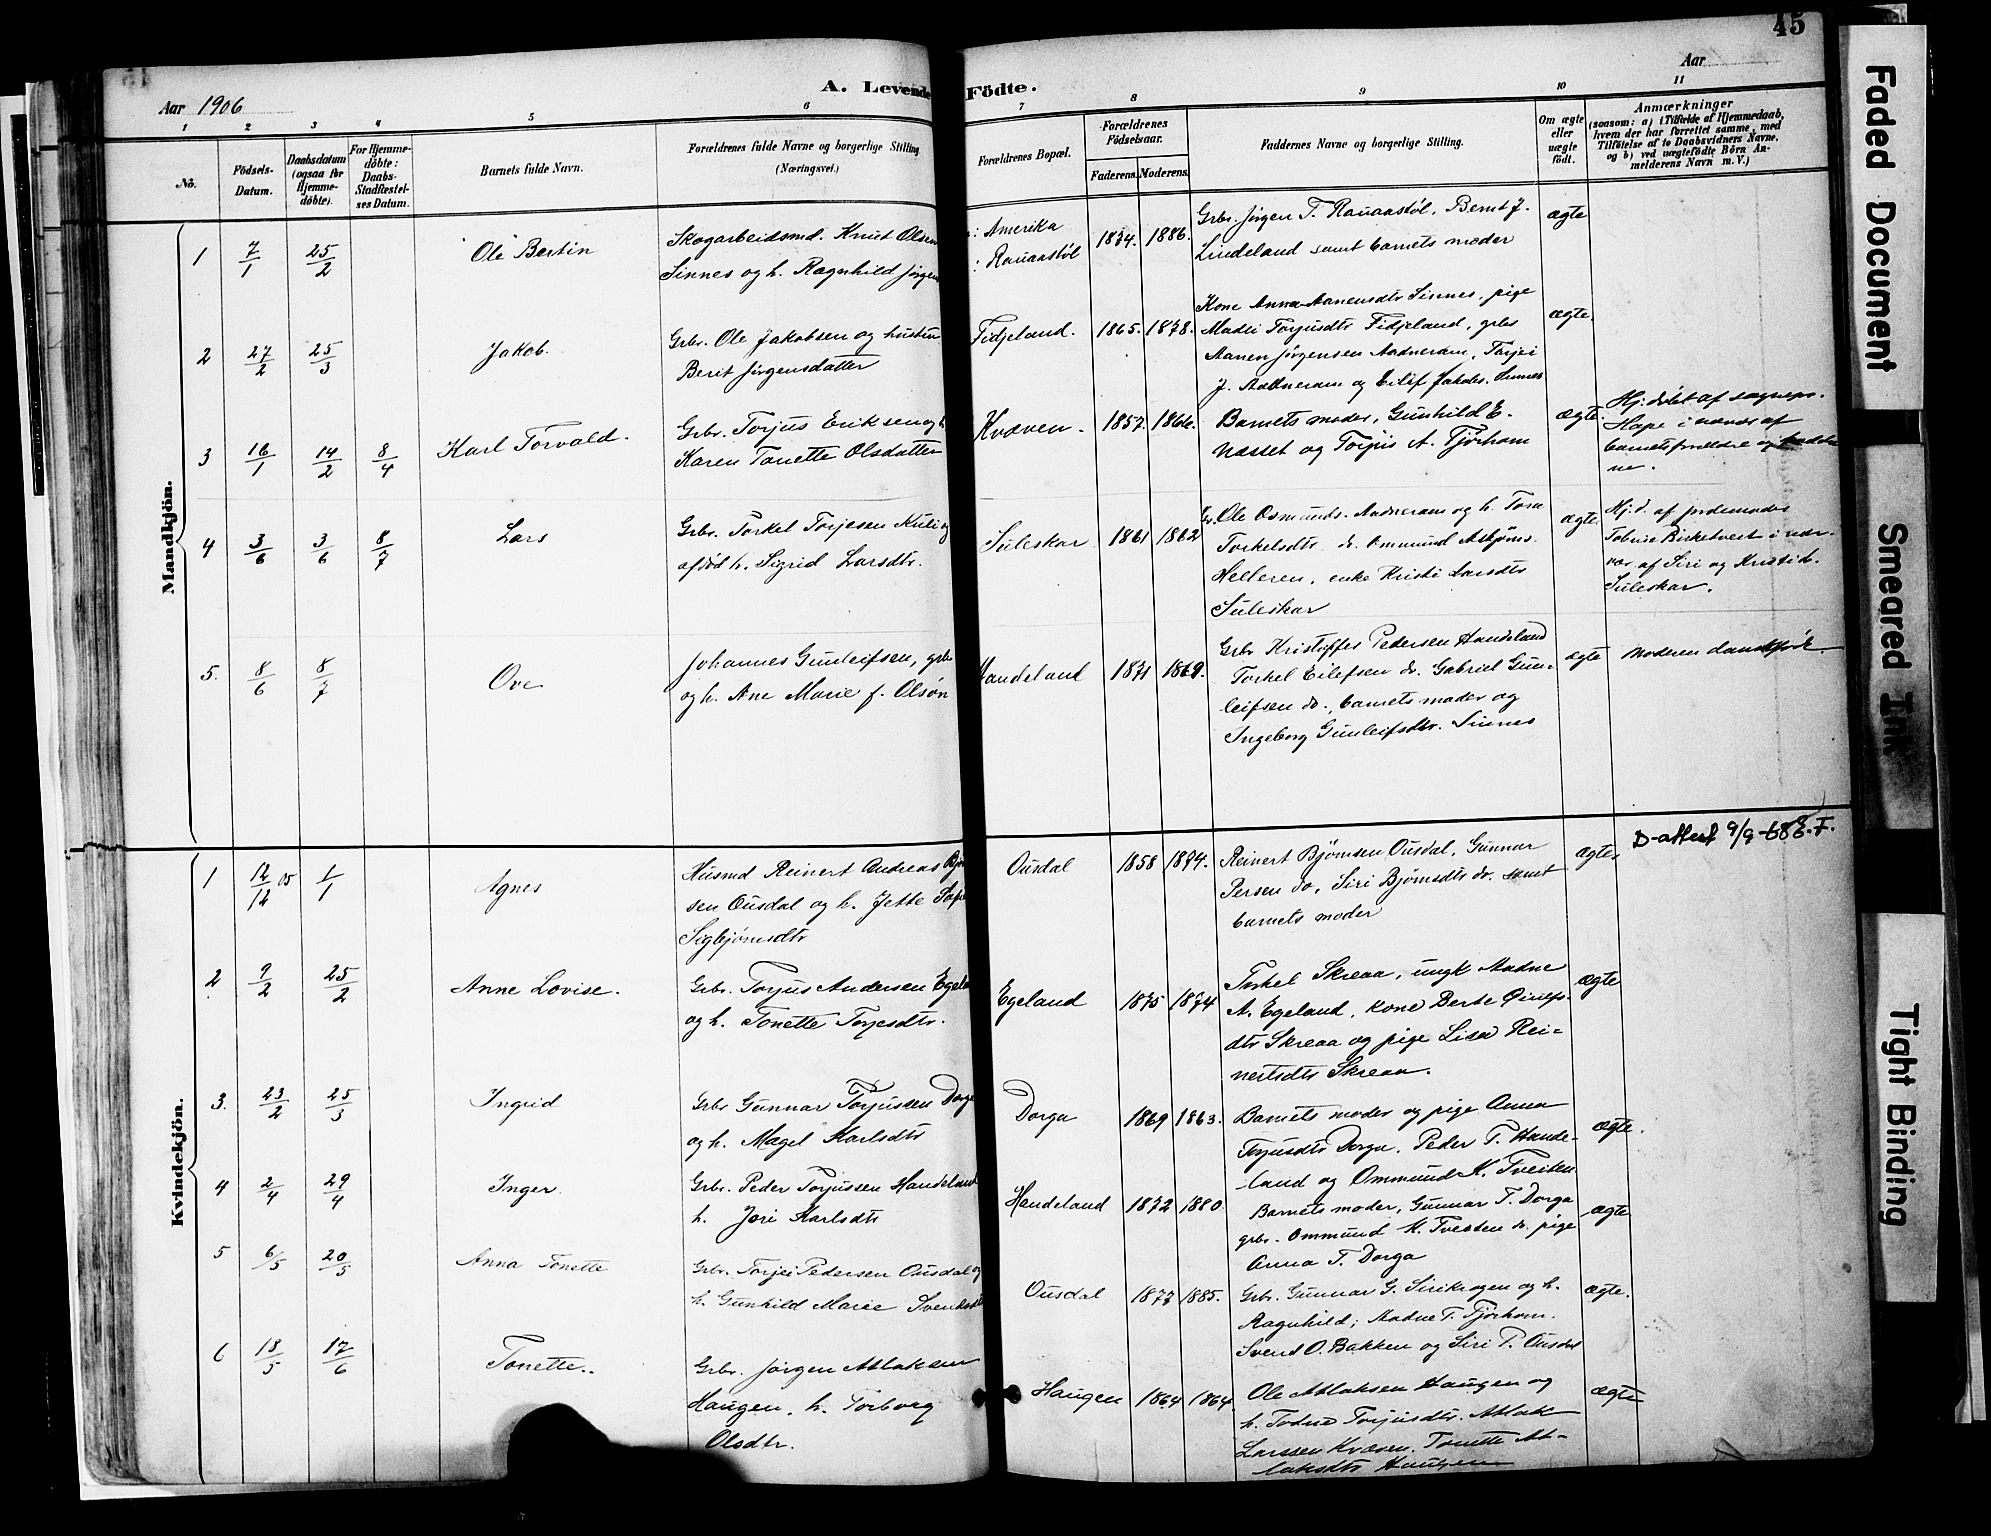 45
A. Levende Födte.
Aar 1906
Aar
1 2 3 4 5 6 7 8 9 10 11
No.
Födsels-Datum.
Daabsdatum (ogsaa for Hjemmedöbte).
For Hjemmedöbte: Daabs-Stadfæstelses Datum.
Barnets fulde Navn.
Forældrenes fulde Navne og borgerlige Stilling (Næringsvei.)
Forældrenes Bopæl.
Forældrenes Födselsaar.
Faderens. Moderens.
Faddernes Navne og borgerlige Stilling.
Om ægte eller uægte födt.
Anmærkninger
(saasom: a) i Tilfælde af Hjemmedaab,
hvem der har forrettet samme, med
Tilföielse af to Daabsvidners Navne,
og b) ved uægtefödte Börn An-
melderens Navn m. V.)
Mandkjön.
1 7/1 25/2 Ole Bertin
Skogarbeidsmd. Knut Olsen
Sinnes og h. Ragnhild Jørgens
Amerika
Rauaastøl
1874. 1886.
Grbr. Jørgen T. Rauaastøl, Bernt J.
Lindeland samt barnets moder
ægte
2 27/2 25/3 Jakob.
Grbr. Ole Jakobsen og hustru
Berit Jørgensdatter
Fidjeland. 1865. 1878.
Kone Anna Aanensdtr Sinnes, pige
Madli Torjusdtr Fidjeland, grbr
Aanen Jørgensen Aadneram, Torjei
J. Aadneram og Eilef Jakobs. Sinnes
ægte.
3 16/1 14/2 8/4 Karl Torvald.
Grbr. Torjus Eriksen og h.
Karen Tonette Olsdatter
Kvæven. 1857. 1866.
Barnets moder, Gunhild E.
Nesset og Torjus A. Tjørhom
ægte.
Hj. døbt af sogneps.
Hope i nærvær af
barnets forældre og fadde
ne.
4 3/6 3/6 8/7 Lars
Grbr. Torkel Torjesen Kuli og
afdød h. Sigrid Larsdtr.
Suleskar 1861 1862
Gr. Ole Osmunds. Aadneram og h. Tora
Torkelsdtr do. Ommund Asbjøms.
Helleren, enke Kristi Larsdtr
Suleskar
ægte.
Hj. d. af jordemoder
Tobine Birketvert i nær-
vær. af Siri og Kristi L.
Suleskar.
5. 8/6 8/7 Ove
Johannes Gunleifsen, grbr
og h. Ane Marie f. Olsøn
Handeland 1871 1869.
Grbr Kristoffer Pedersen Handeland
Torkel Eilefsen do. Gabriel Gun-
leifsen do., barnets moder og
Ingeborg Gunleifsdtr. Sinnes
ægte
Moderen danskfødt.
Kvindekjön.
1 12/12 05 1/1 Agnes
Husmd Reinert Andreas Bjørn
sen Ousdal og h. Jette Sofie
Sigbjørnsdtr
Ousdal 1858 1874.
Reinert Bjørnsen Ousdal, Gunnar
Persen do, Siri Bjørnsdtr do. samt
barnets moder
ægte
D-attest 9/9-68
2 9/2 25/2 Anne Lovise.
Grbr. Torjus Andersen Egela
og h. Tonette Torjesdtr.
Egeland 1875 1874
Torkel Skreaa, ungk Aadne
A. Egeland, kone Berte
dtr Skreaa og pige Lisa Rei-
nertsdtr Skreaa.
ægte
3. 23/2 25/3 Ingrid
Grbr Gunnar Torjussen Dorga
og h. Magel Karlsdtr
Dorga 1869 1863.
Barnets moder og pige Anna
Torjusdtr Dorga, Peder T. Hande-
land og Ommund K. Tveiten
ægte.
4 2/4 29/4 Inger.
Grbr. Peder Torjussen Handeland
h. Jori Karlsdtr
Handeland 1872 1880.
Barnets moder, Gunnar T. Dorga
grbr. Ommund K. Tveiten do. pige
Anna T. Dorga
ægte
5 6/5 20/5 Anna Tonette
Grbr. Torjei Pedersen Ousdal og
h. Gunhild Marie Svendsdt
Ousdal 1877 1885.
Grbr. Gunnar G. Sirikrogen og h.
Ragnhild; Aadne T. Tjørhom.
Svend O. Bakken og Siri P. Ousdal
ægte.
6 18/5 17/6 Tonette.
Grbr. Jørgen Atlaksen
Haugen. h. Torborg
Olsdtr.
Haugen 1864 1864.
Ole Atlaksen Haugen og
h. Todne Torjusdtr. Atlak
Larssen Kvæven. Tonette At-
laksdtr Haugen
ægte
Faded Document
Smeared Ink
Tight Binding